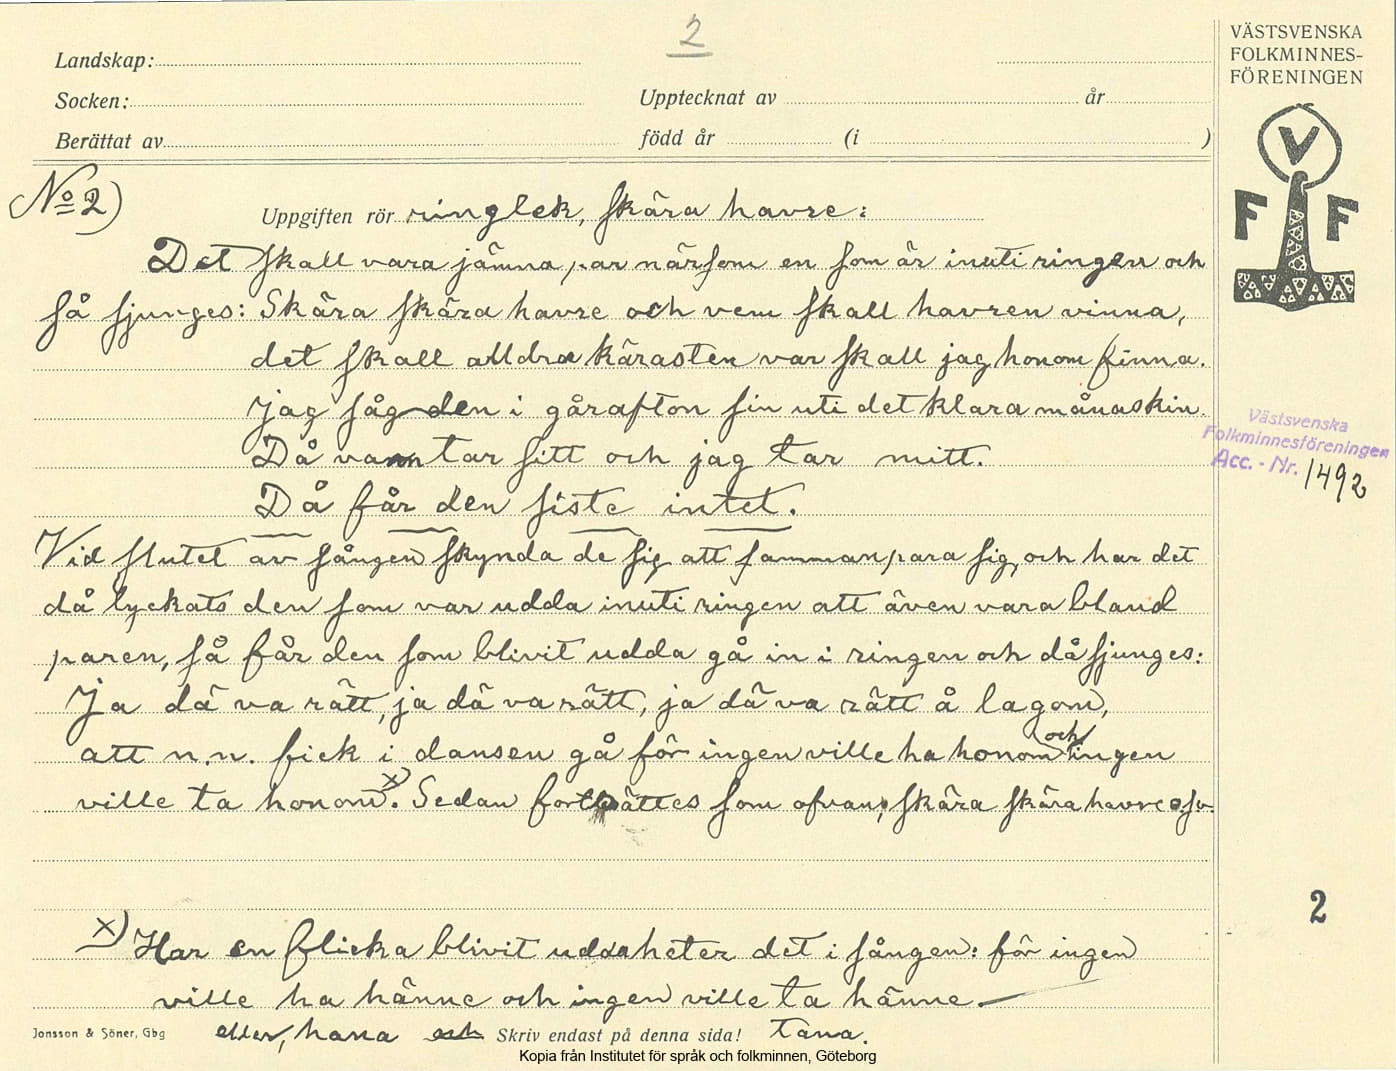 2
VÄSTSVENSKA
FOLKMINNES-
FÖRENINGEN
V
F F
Landskap:
Socken:
Upptecknat av år
Berättat av
född år (i )
No 2)
Uppgiften rör ringlek, skära havre:
Det skall vara jämna par närsom en som är inuti ringen och
så sjunges: Skära skära havre och vem skall havren vinna,
det skall alldra kärasten var skall jag honom finna.
Jag såg den i gårafton sin uti det klara månaskin.
Då vann tar sitt och jag tar mitt.
Då får den siste intet.
Västsvenska
Folkminnesföreningen
Acc. - Nr. 1492
Vid slutet av sången skynda de sig att samman para sig, och har det
då lyckats den som var udda inuti ringen att även vara bland
paren, så får den som blivit udda gå in i ringen och då sjunges:
Ja dä va rätt, ja dä va rätt, ja dä va rätt å lagom,
att n.n. fick i dansen gå för ingen ville ha honom och ingen
ville ta honom x). Sedan fortsättes som ofvan, skära skära havre o.sv.
2
x) Har en flicka blivit udda heter det i sången: för ingen
ville ha hänne och ingen ville ta hänne.
eller, hana och tana.
Jonsson & Söner, Gbg Skriv endast på denna sida!
Kopia från Institutet för språk och folkminnen, Göteborg